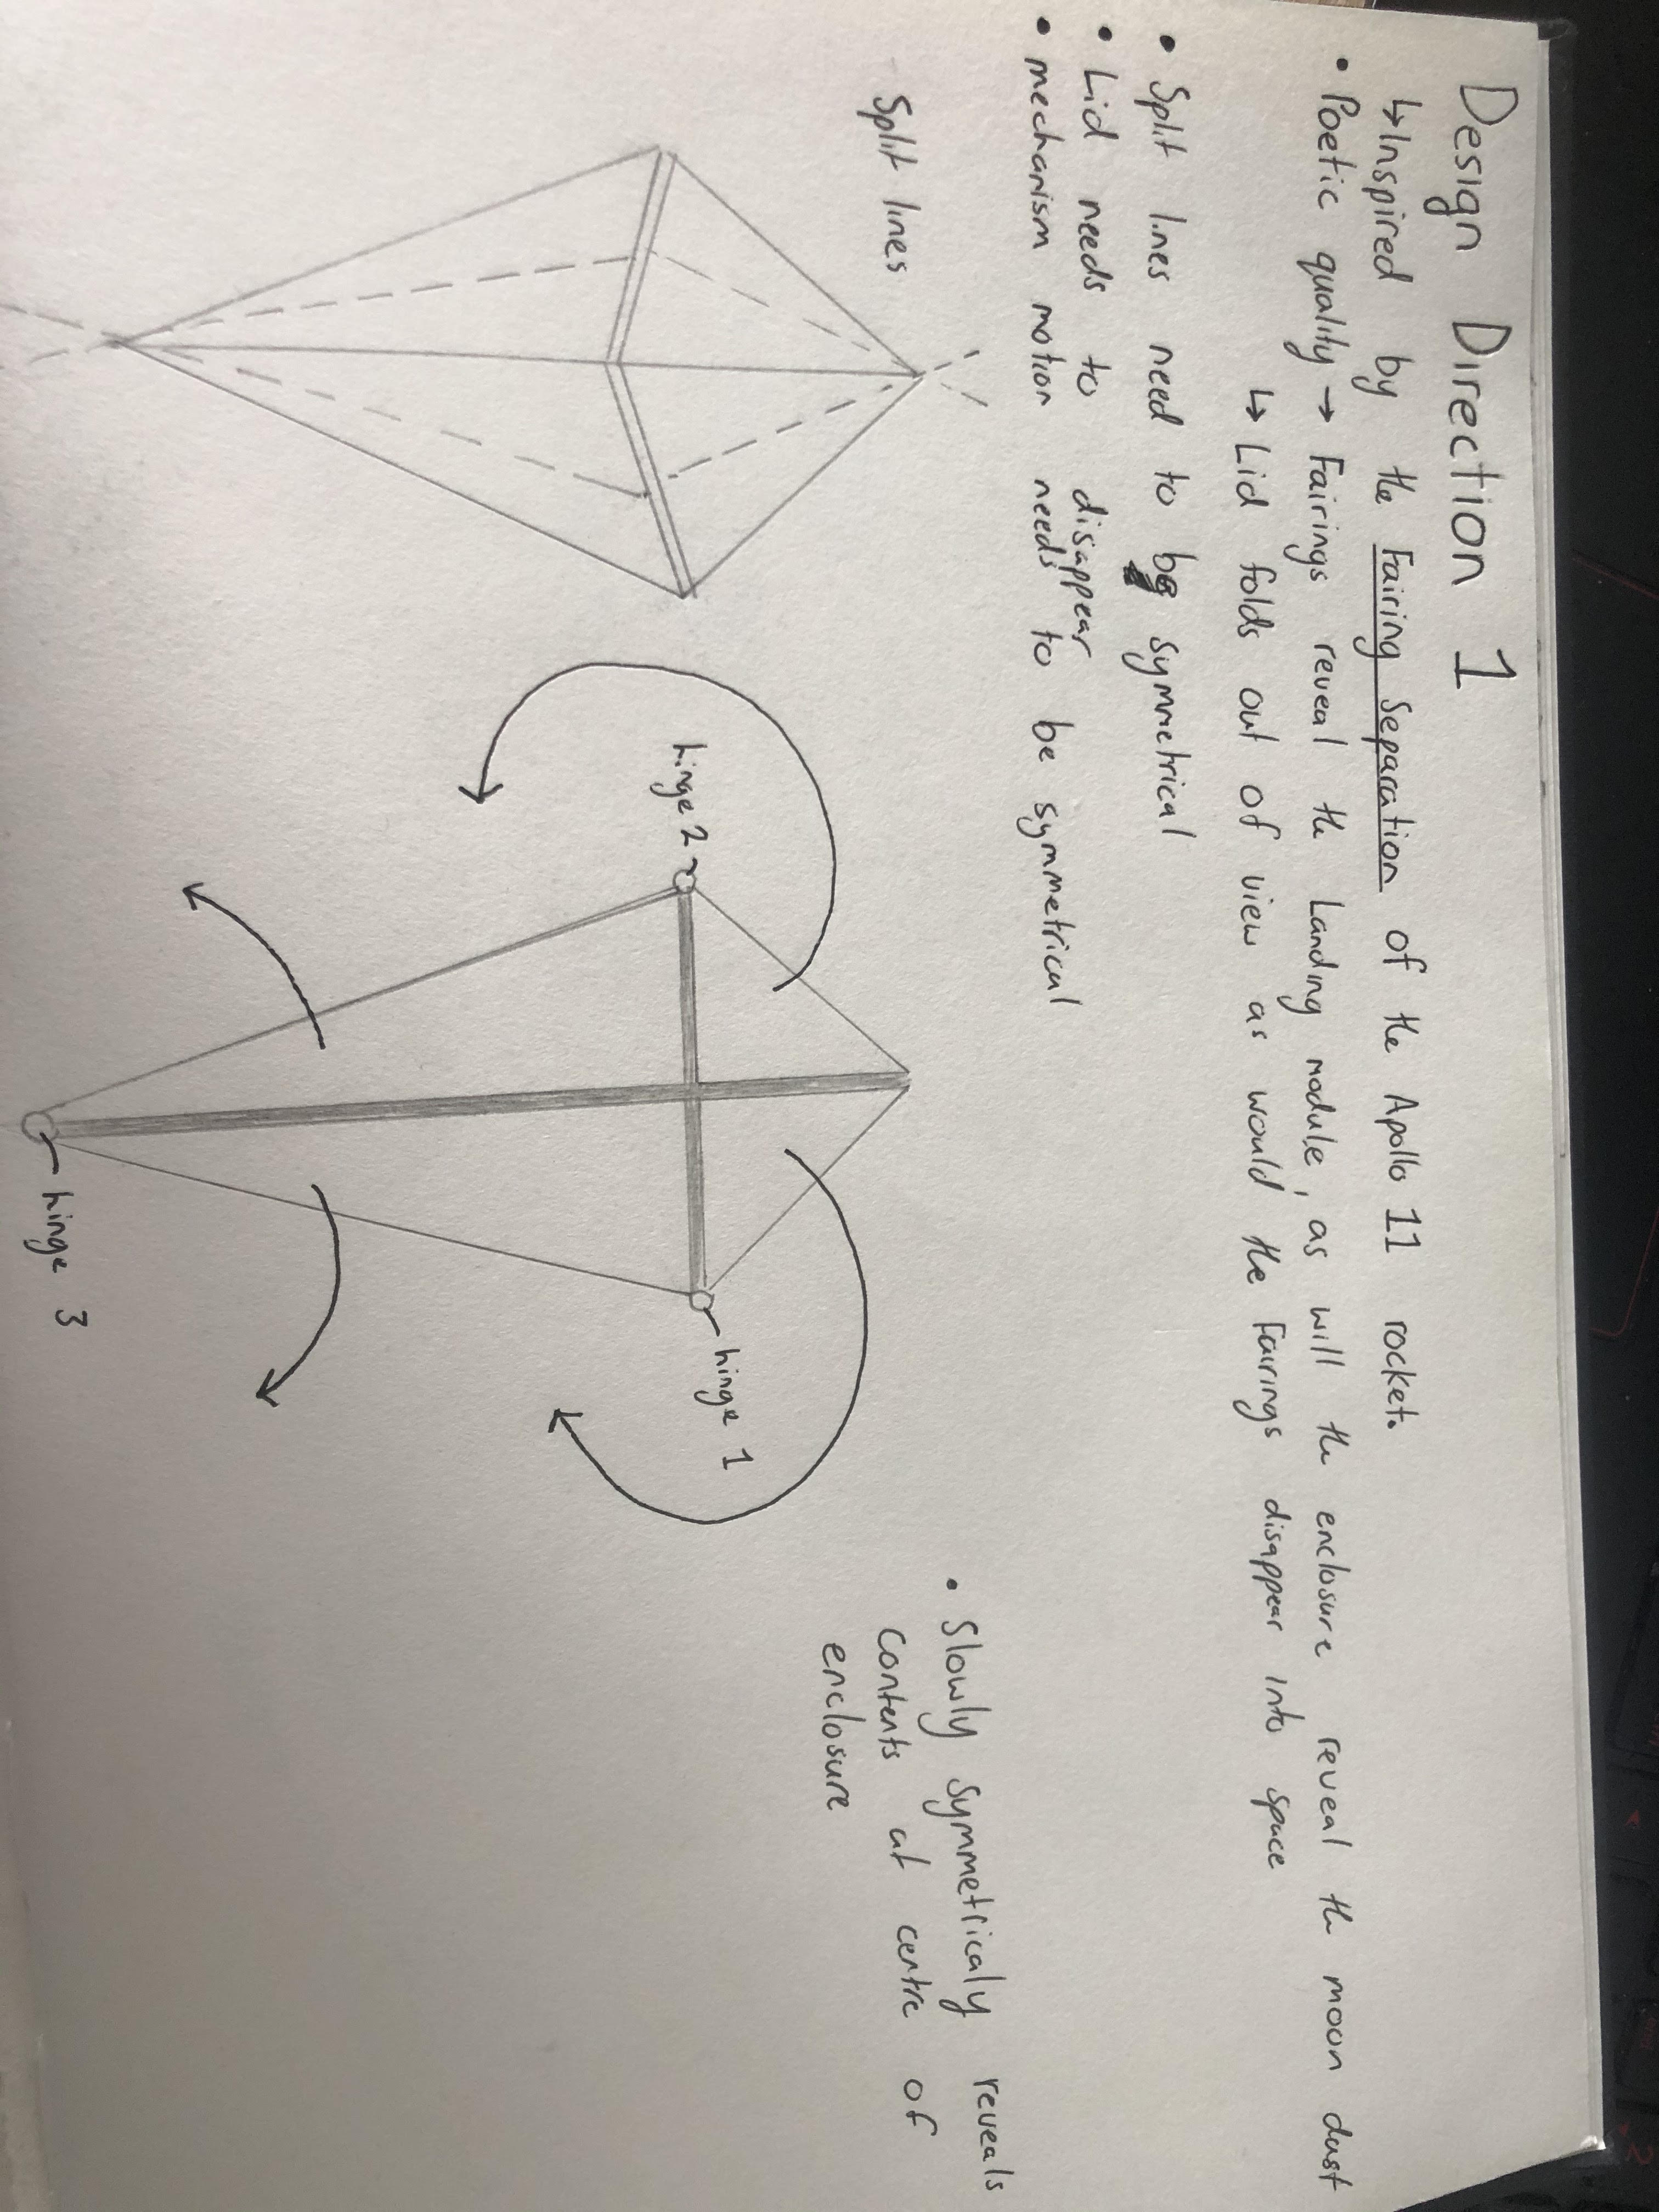 Design Direction 1
↳ Inspired by the Fairing Separation of the Apollo 11 rocket.
• Poetic quality → Fairings reveal the Landing module, as will the enclosure reveal the moon dust
↳ Lid folds out of view as would the Fairings disappear into space
• Split lines need to be symmetrical
• Lid needs to disappear
• mechanism motion needs to be symmetrical
• Slowly symmetricaly reveals
contents at centre of
enclosure
Split lines
hinge 1
hinge 2
hinge 3